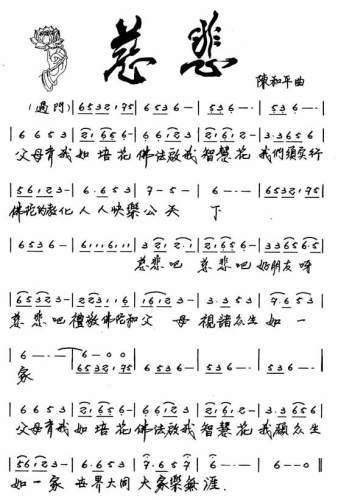 慈悲
陳和平曲
(過門) | 6532175 | 6 536 - | 536 - | 536 - - · |
6 6 5 3 | 21656 - | 66123 | 21612 - | 3·3656 |
父母育我如培花 佛法啟我智慧花 我們須实行
56123 - | 6·653 | 7 - 5 - | 6 - - · | 6532175 |
佛陀的教化人人快樂公天下
6536 - | 6111611 | 3 21 2·1 | 21656 - | 33656·5 |
慈悲吧 慈悲吧 好朋友呀
65323 - | 223116 | 16123 - | 3·353 | 7·653 |
慈悲吧禮敬佛陀和父母視諸众生如一
6 - - · | 6 - 0 0
家
6532175 | 6 536 - | 536 - · | 536 - · |
6 6 5 3 | 21656 - | 66123 | 21612 - | 3·3656 |
父母育我如培花 佛法啟我智慧花 我願众生
56123 - | 6·653 | 3·657 | 7 - 5 - | 6 - - · | 6 - - 0 ‖
如一家 世界大同 大家樂無涯.